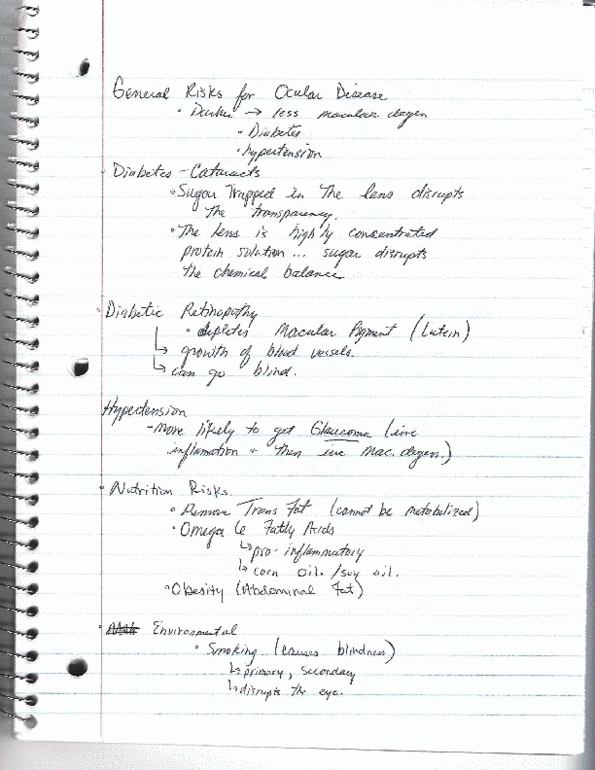 General Risks for Ocular Disease
• Darker → less macular degen
• Diabetes
• hypertension
• Diabetes - Cataracts
• Sugar Trapped in The lens disrupts
The transparency.
• The lens is highly concentrated
protein solution ... sugar disrupts
the chemical balance
• Diabetic Retinopathy
• depletes Macular Pigment (Lutein)
↳ growth of blood vessels.
↳ can go blind.
Hypertension
- more likely to get Glaucoma (inc
inflamation + then inc mac. degen.)
• Nutrition Risks.
• Remove Trans Fat (cannot be metabolized)
• Omega 6 Fatty Acids
↳ pro-inflammatory
↳ corn oil. / soy oil.
• Obesity (Abdominal Fat)
• Environmental
• Smoking. (causes blindness)
↳ primary, secondary
↳ disrupts the eye.